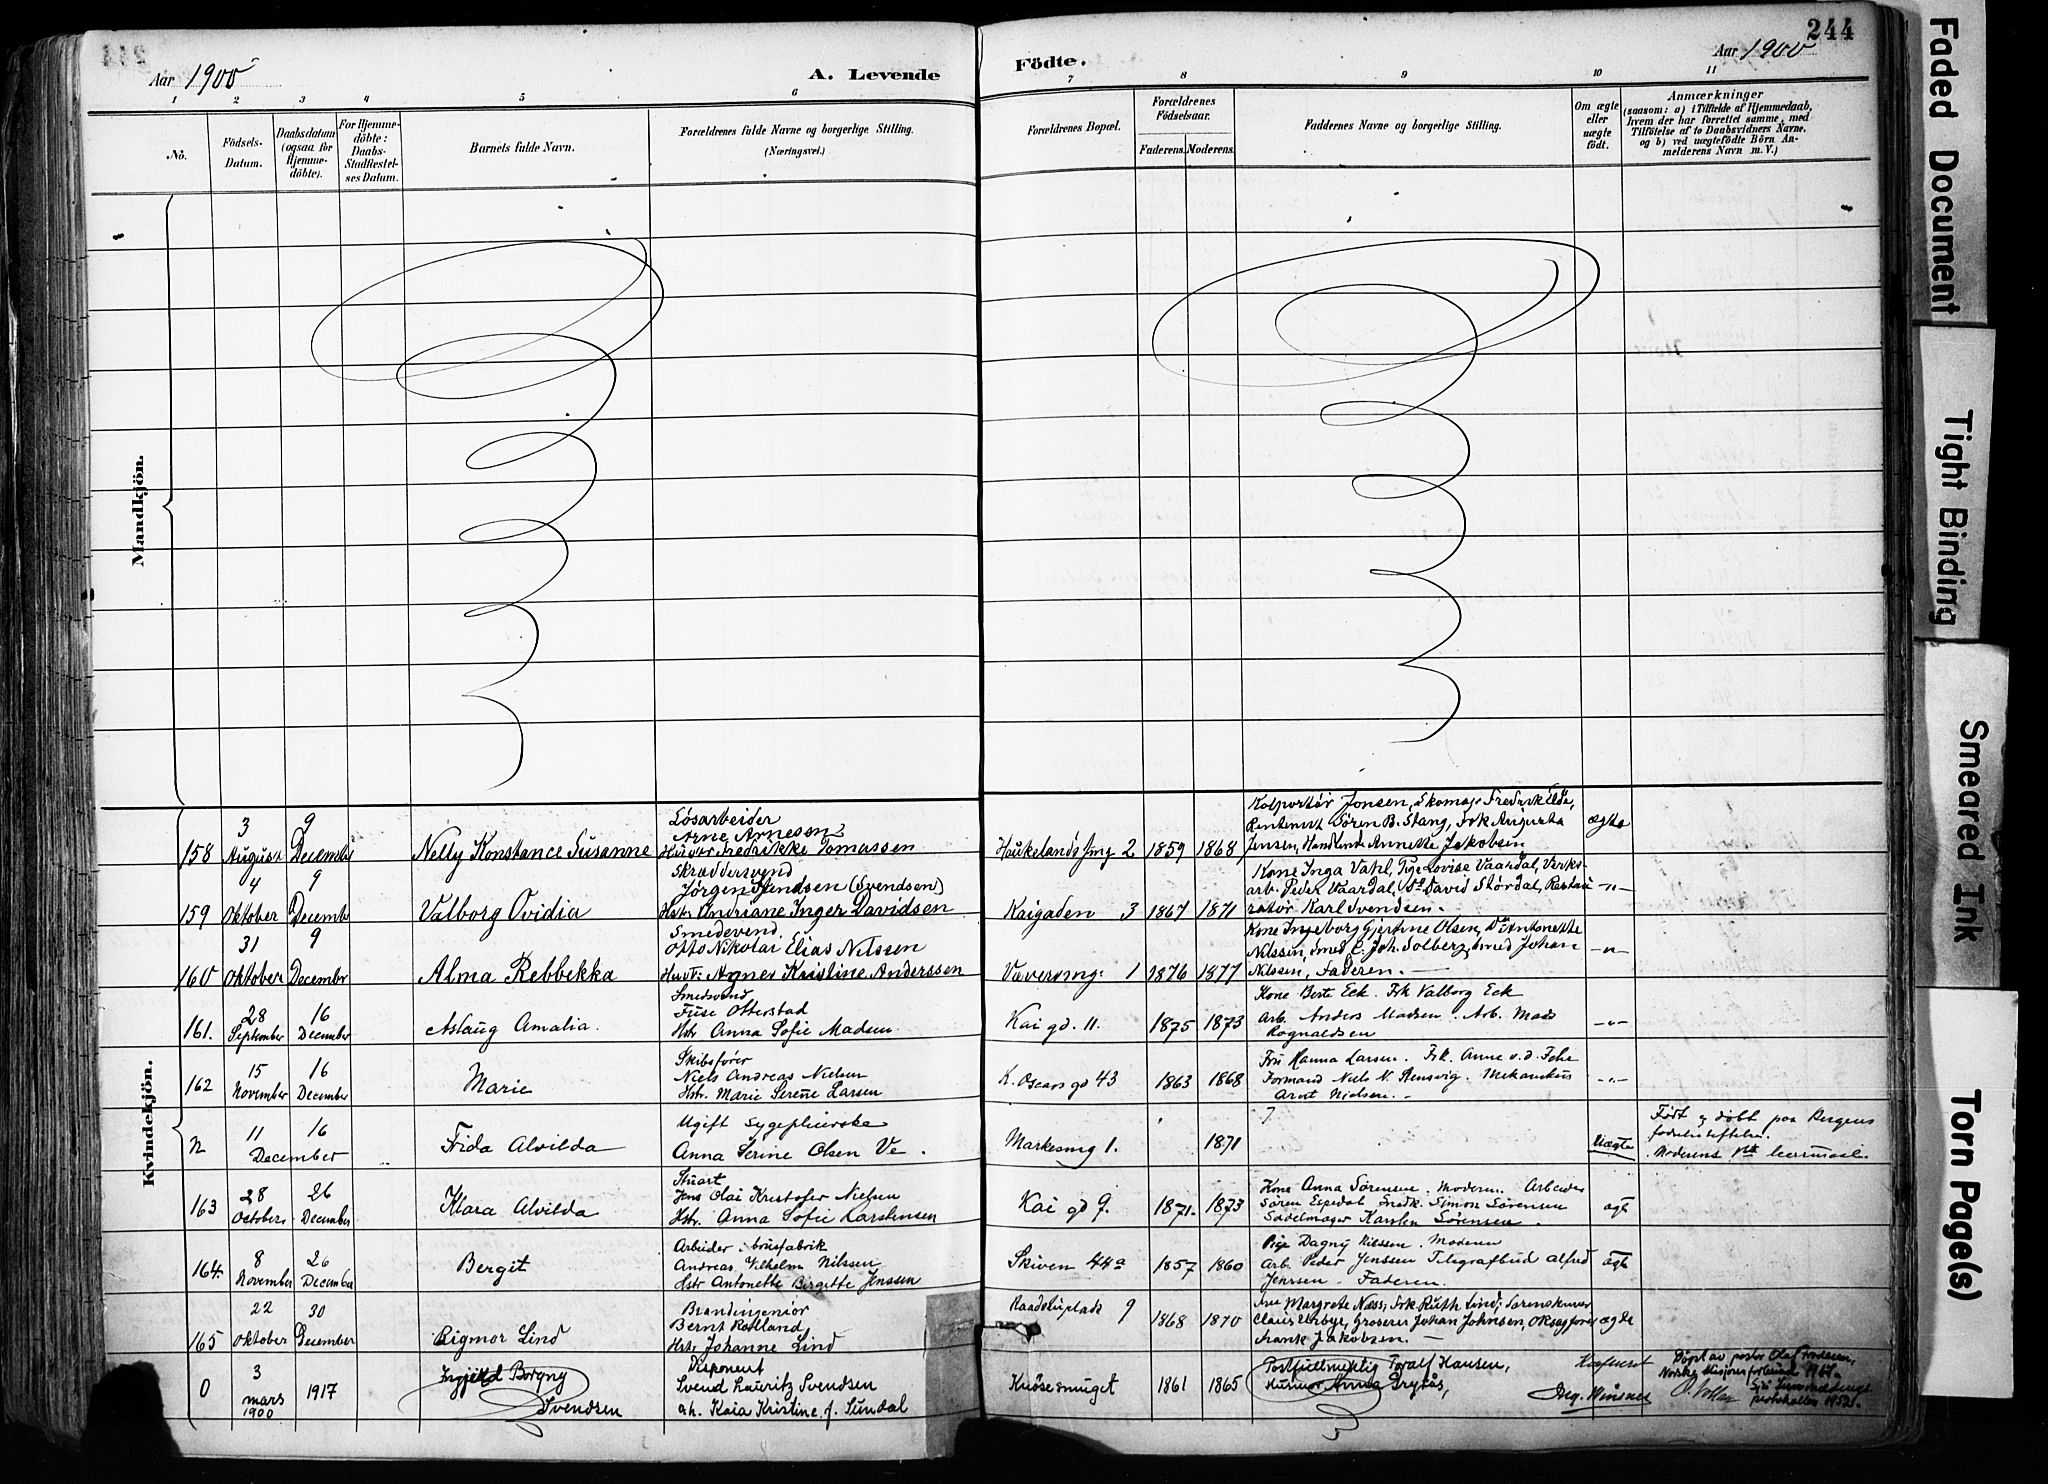 244
Aar 1900
A. Levende
Födte.
Aar 1900
1 2 3 4 5 6 7 8 9 10 11
No.
Födsels-
Datum.
Daabsdatum
(ogsaa for
Hjemme-
döbte).
For Hjemme-
döbte:
Daabs-
Stadfæstel-
ses Datum.
Barnets fulde Navn.
Forældrenes fulde Navne og borgerlige Stilling.
(Næringsvei.)
Forældrenes Bopæl.
Forældrenes
Födselsaar.
Faderens. Moderens.
Faddernes Navne og borgerlige Stilling.
Om ægte
eller
uægte
födt.
Anmærkninger
(saasom: a) i Tilfælde af Hjemmedaab,
hvem der har forrettet samme, med
Tilföielse af to Daabsvidners Navne.
og b) ved uægtefödte Börn An-
melderens Navn m.V.)
Mandkjön.
Kvindekjön.
158
3
August
9
Decembr
Nelly Konstance Susanne
Løsarbeider
Arne Arnesen
Hustr Fredrikke Tomassen
Haukelandssmg 2
1859 1868
Kolportør Jonsen, Skomag. Fredrik
Rentenist Søren B. Stang, Frk Augusta
Jensen, Handlende Annette Jakobsen
ægte
159
4
Oktober
9
Decembr
Valborg Ovidia
Skræddersvend
Jørgen Svendsen (Svendsen)
Hstr Andriane Inger Davidsen
Kaigaden 3
1867 1871
Kone Inga Vahl, Pige Lovise Vaardal, Verks-
arb. Peder Vaardal, Do David Stördal, Restau
ratør Karl Svendsen.
-"-
160
31
Oktober
9
Decembr
Alma Rebbekka
Smedesvend
Otto Nikolai Elias Nilssen
Hustr: Agnes Kristine Anderssen
Væversmg: 1
1876 1877
Kone Ingeborg Gjertine Olsen, Do Antonette
Nilssen, Smed C. Joh. Solberg, Smed Johan
Nilssen, Faderen.
-"-
161.
28
September
16
December
Aslaug Amalia.
Smedsvend
Otterstad
Hstr Anna Sofie Madsen.
Kai gd. 11.
1875 1873
Kone Berte Eck. Frk Valborg Eck
Arb. Anders Madsen. Arb. Mads
Rognaldsen
-"-
162
15
November
16
December
Marie
Skibsfører
Niels Andreas Nielsen
Hstr. Marie Serene Larsen
K. Oscars gd 43
1863 1868
Fru Hanna Larsen. Frk. Anne v.d. Fehr
Formand Niels N. Stensvig. Mekanikus
Arnt Nielsen.
-"-
n
11
16
December
Frida Alvilda
Ugift Sygepleierske
Anna Serine Olsen Ve.
Markesmg 1.
1871
Uægte
Født og døbt paa Bergens
fødselsstiftelse.
Moderens
163
28
Octobers
26
December
Klara Alvilda
Stuart
Jens Olai Kristofer Nielsen
Hstr. Anna Sofie Karstensen
Kai gd 9.
1871. 1873
Kone Anna Sørensen. Moderen. Arbeider
Søren Espedal Snedk. Simon Sørensen
Sadelmager Karsten Sørensen.
ægt
164.
8
November
26
December
Bergit
Arbeider i brusfabrik
Andreas Vilhelm Nilssen
Hstr Antonette Birgitte Jenssen
Skiven 44a
1857 1860
Pige Dagny Nilssen. Moderen
Arb. Peder Jenssen Telegrafbud Alfred
Jenssen. Faderen.
ægt
165
22
Oktober
30
December
Rigmor Lind
Brandingeniør
Bernt Rolland
Hstr Johanne Lind
Raadstuplads 9
1868 1870
Fru Margrete Næss, Frk Ruth Lind, Sorenskriver
Claus Urbye, Grosserer Johan Johnsen,
Frank Jakobsen.
ægde
0
3
mars
1900
1917
Ingjerd Borgny
Svendsen
Disponent
Svend Lauritz Svendsen
ah. Kaia Kristine f. Sundal
Knøsesmuget
1861 1865
Postfullmektig Toralf Hansen,
Husmor Anna
Døpt av pastor Olaf
Norske Misjons 1917.
protokollen 1952.
Faded Document
Tight Binding
Smeared Ink
Torn Page(s)